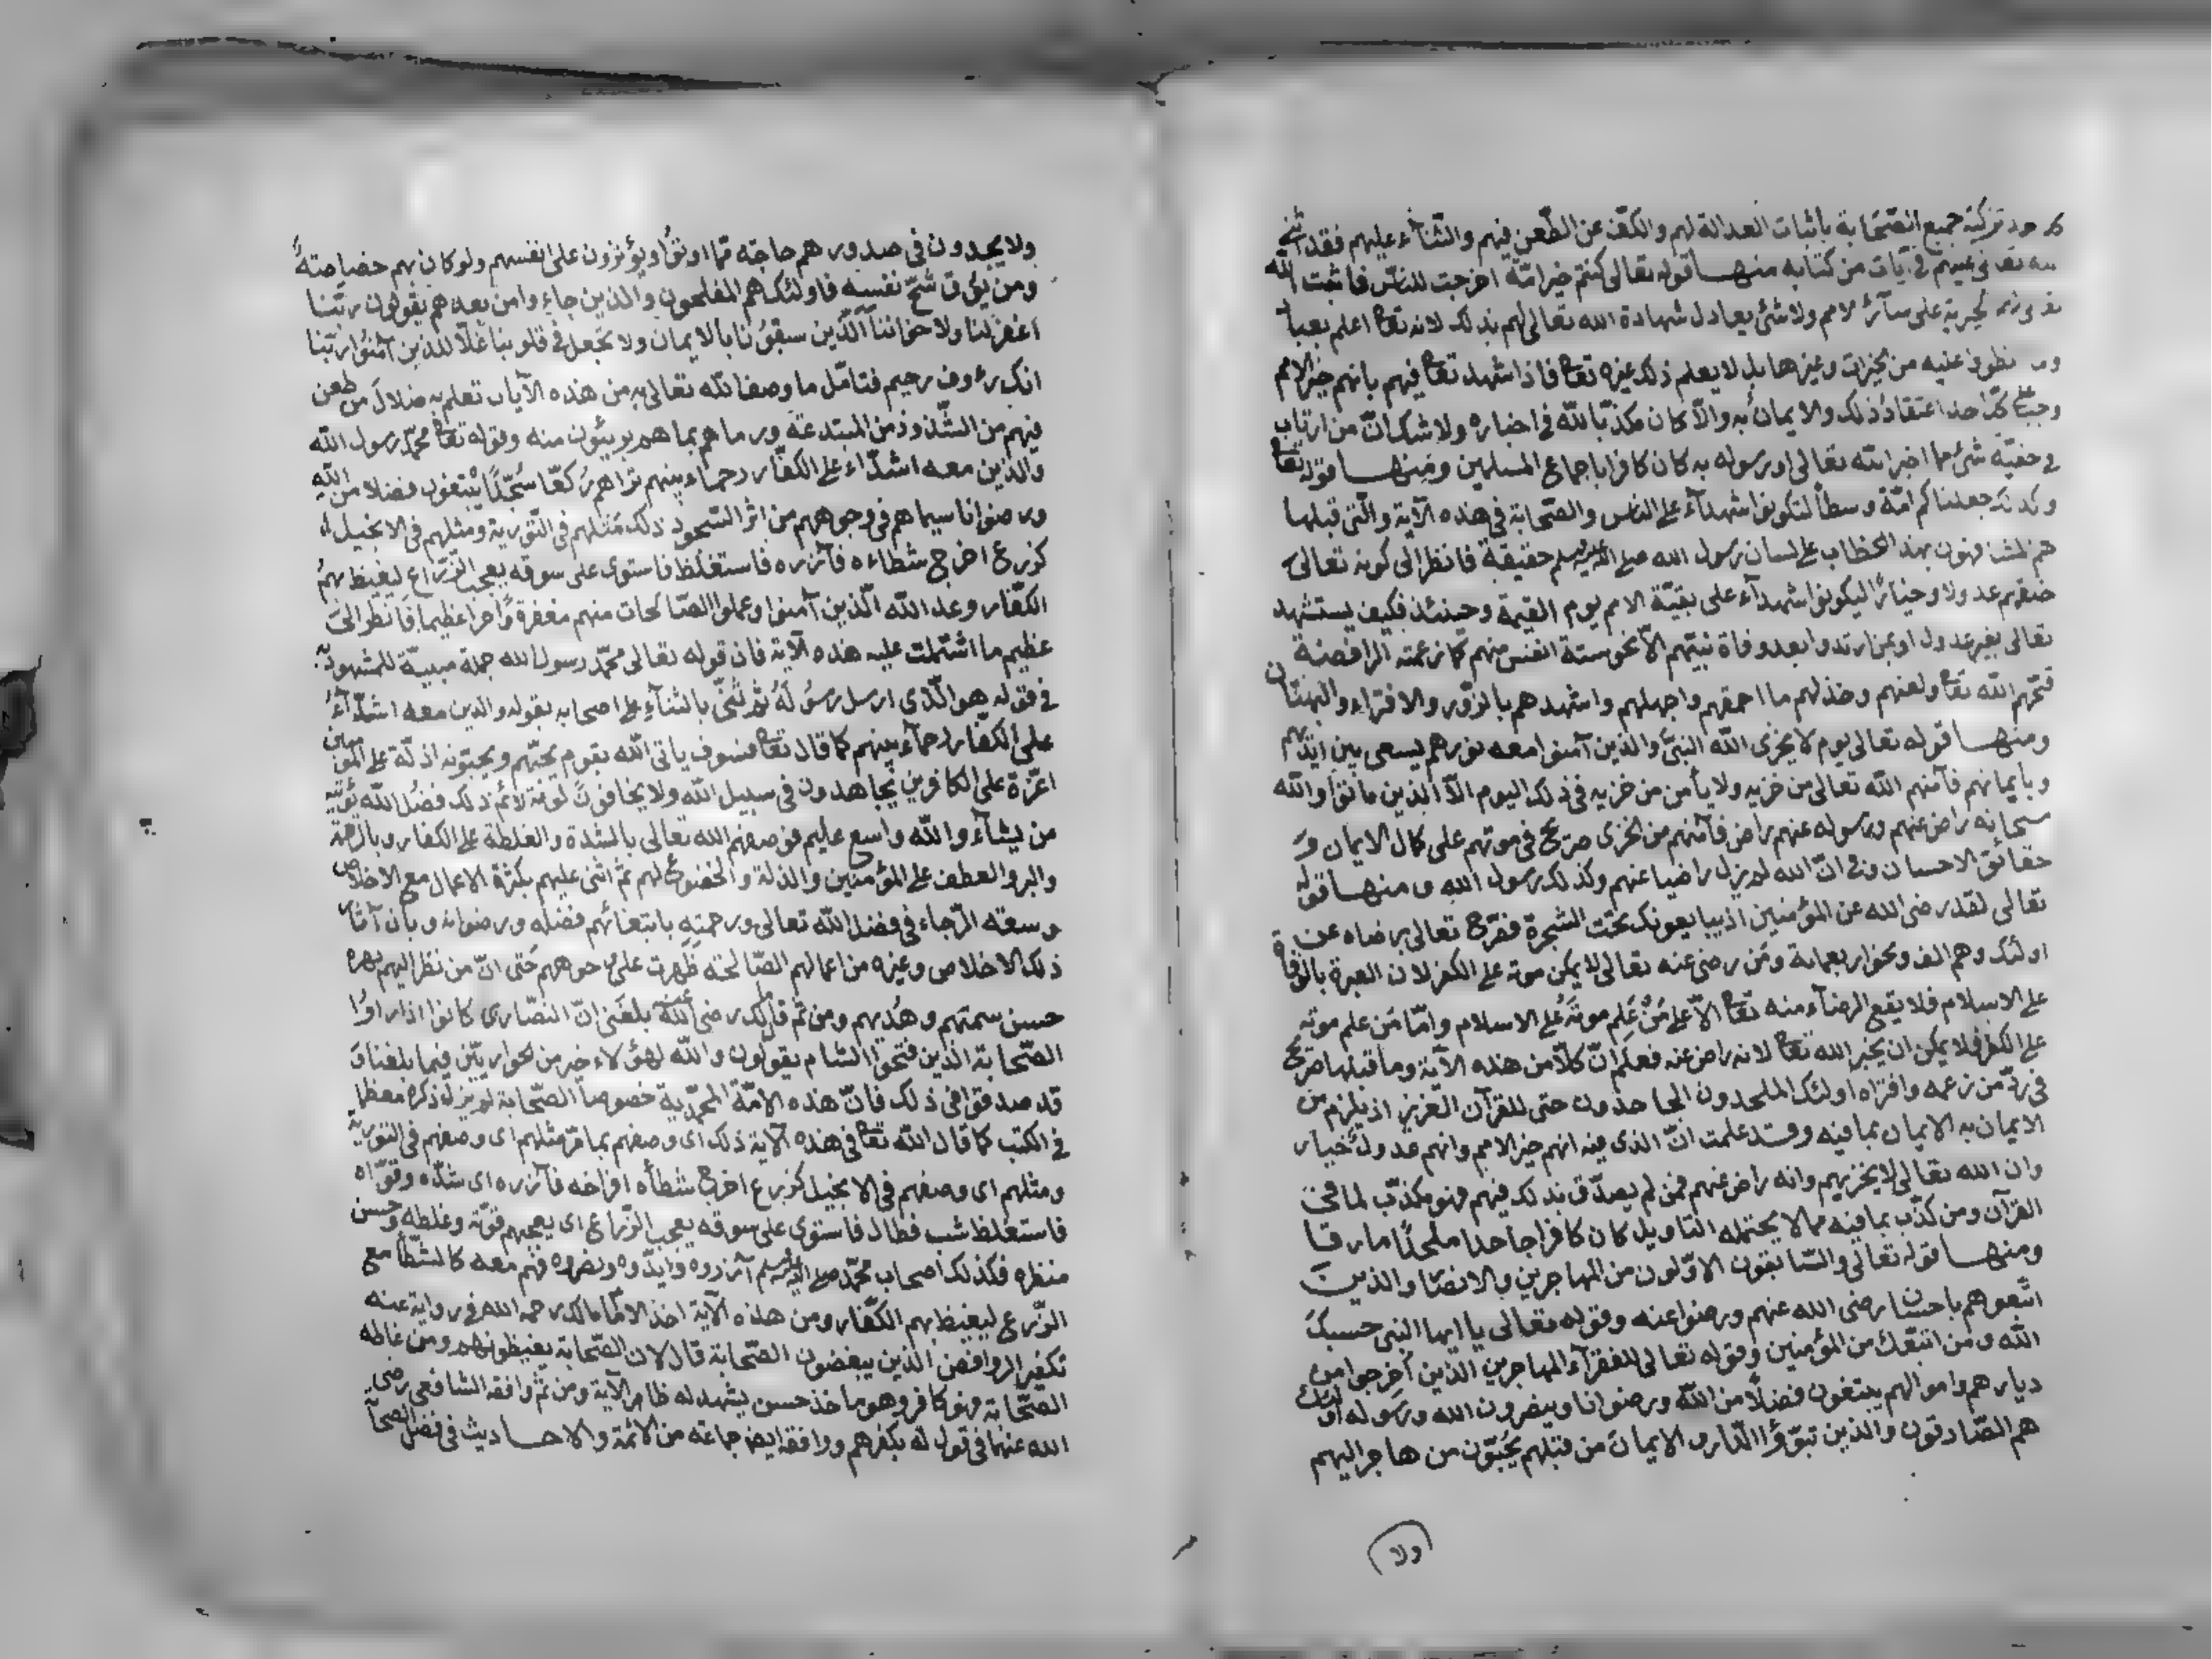 كل احد تزكية جميع الصّحابة باثبات العدالة لهم والكفّ عن الطّعن فيهم والثّنآء عليهم فقد اثنى
الله تعالى عليهم في آيات من كتابه منهـا قوله تعالى كنتم خير امّة اخرجت للنّاس فاثبت الله
لهم الخيرية على سآئر الامم ولا شئ يعادل شهادة الله تعالى لهم بذلك لانه تعا اعلم بعباده
وما نطووا عليه من الخيرات وغيرها بل لا يعلم ذلك غيره تعا فاذا شهد تعا فيهم بانهم خير الامم
وجب على كلّ احد اعتقاد ذلك والايمان به والّا كان مكذّبا لله في اخباره ولا شك انّ من ارتاب
في حقيّة شئ مما اخبر الله تعالى او رسوله به كان كافرا باجماع المسلمين ومنهـا قوله تعا
وكذلك جعلناكم امّة وسطاً لتكونوا شهدآء على الناس والصّحابة في هذه الآية والّتي قبلها
هم المشافهون بهذا الخطاب على لسان رسول الله صلى الله عليه وسلم حقيقة فانظر الى كونه تعالى
خلقهم عدولا وخياراً ليكونوا شهدآء على بقيّة الامم يوم القيمة وحينئذ فكيف يستشهد
تعالى بغير عدول او بمن ارتدوا بعد وفاة نبيّهم الّا نحو ستة انفس منهم كما زعمته الرافضة
قبّحهم الله تعا ولعنهم وخذلهم ما احمقهم واجهلهم واشهدهم بالزّور والافتراء والبهتان
ومنهـا قوله تعالى يوم لا يخزى الله النبيّ والذين آمنوا معه نورهم يسعى بين ايديهم
وبايمانهم فآمنهم الله تعالى من خزيه ولا يأمن من خزيه في ذلك اليوم الّا الذين ماتوا والله
سبحانه راض عنهم ورسوله عنهم راض فآمنهم من الخزى صريح في موتهم على كمال الايمان و
حقائق الاحسان وفي انّ الله لم يزل راضيا عنهم وكذلك رسول الله ومنهـا قوله
تعالى لقد رضى الله عن المؤمنين اذ يبايعونك تحت الشجرة فصّرح تعالى برضاه عن
اولئك وهم الف ونحو اربعماية ومن رضى عنه تعالى لا يمكن موته على الكفر لان العبرة بالوفاة
على الاسلام فلا يقع الرضآء منه تعا الّا على من علم موته على الاسلام وامّا من علم موته
على الكفر فلا يمكن ان يخبر الله تعا لانه راض عنه فعلم انّ كلّاً من هذه الآية وما قبلها صريح
في ردّ من زعمه وافتراه اولئك الملحدون الجاحدون حتى للقرآن العزيز اذ يلزم من
الايمان به الايمان بما فيه وقـد علمت انّ الذى فيه انهم خير الامم وانهم عدول خيار
وان الله تعالى لا يخزيهم وانه راض عنهم فمن لم يصدّق بذلك فيهم فهو مكذّب لما في
القرآن ومن كذّب بما فيه مما لا يحتمله التاويل كان كافرا جاحدا ملحداً مارقـا
ومنهـا قوله تعالى والسّابقون الاوّلون من المهاجرين والانصار والذيـن
اتّبعوهم باحسان رضى الله عنهم ورضوا عنه وقوله تعالى يا ايها النبي حسبك
الله ومن اتّبعك من المؤمنين وقوله تعالى للفقرآء المهاجرين الذين اخرجوا من
ديارهم واموالهم يبتغون فضلاً من الله ورضوانا وينصرون الله ورسوله اولئك
هم الصّادقون والذين تبوّؤا الدّار والايمان من قبلهم يحبّون من هاجر اليهم
ولا
ولا يجدون في صدورهم حاجة ممّا اوتوا ويؤثرون على انفسهم ولو كان بهم خصاصة
ومن يوق شحّ نفسه فاولئك هم المفلحون والذين جاءوا من بعدهم يقولون ربّنا
اغفر لنا ولاخواننا الّذين سبقونا بالايمان ولا تجعل في قلوبنا غلّاً للذين آمنوا ربّنا
انك رءوف رحيم فتامّل ما وصفهم الله تعالى به من هذه الآيات تعلم به ضلال من طعن
فيهم من الشّذوذ من المبتدعة ورماهم بما هم بريئون منه وقوله تعا محمّد رسول الله
والذين معه اشدّاء على الكفّار رحماء بينهم تراهم ركعّا سجّدا يبتغون فضلا من الله
ورضوانا سيماهم في وجوههم من اثر السّجود ذلك مثلهم في التّورية ومثلهم في الانجيل
كزرع اخرج شطاءه فآزره فاستغلظ فاستوى على سوقه يعجب الزّراع ليغيظ بهم
الكفّار وعد الله الّذين آمنوا وعملوا الصّالحات منهم مغفرة واجرا عظيما فانظر الى
عظيم ما اشتملت عليه هذه الآية فان قوله تعالى محمّد رسول الله جملة مبيّنة للمشهود به
في قوله هو الّذى ارسل رسوله ثم ثنّى بالثنآء على اصحابه بقوله والذين معه اشدّآء
على الكفّار رحمآء بينهم كما قال تعا فسوف ياتى الله بقوم يحبّهم ويحبّونه اذلّة على المؤمنين
اعزّة على الكافرين يجاهدون في سبيل الله ولا يخافون لومة لائم ذلك فضل الله يؤتيه
من يشآء والله واسع عليم فوصفهم الله تعالى بالشدة والغلظة على الكفار وبالرحمة
والبر والعطف على المؤمنين والذلة والخضوع لهم ثم اثنى عليهم بكثرة الاعمال مع الاخلاص
وسعة الرّجاء في فضل الله تعالى ورحمته بابتغائهم فضله ورضوانه وبان آثار
ذلك الاخلاص وغيره من اعمالهم الصّالحة ظهرت على وجوههم حتى انّ من نظر اليهم بهره
حسن سمتهم وهديهم ومن ثم قال مالك رضى الله عنه بلغنى انّ النصّارى كانوا اذا راوا
الصّحابة الذين فتحوا الشام يقولون والله لهؤلاء خير من الحواريين فيما بلغنا و
قد صدقوا في ذلك فانّ هذه الامّة المحمّدية خصوصا الصّحابة لم يزل ذكرهم معظما
في الكتب كما قال الله تعا في هذه الآية ذلك اى وصفهم بما مرّ مثلهم اى وصفهم في التورية
ومثلهم اى وصفهم في الانجيل كزرع اخرج شطأه افراخه فآزره اى شدّه وقوّاه
فاستغلظ شب فطال فاستوى على سوقه يعجب الزّراع اى يعجبهم قوّته وغلظه وحسن
منظره فكذلك اصحاب محمّد صلى الله عليه وسلم آزروه وايّدوه ونصروه فهم معه كالشّطأ مع
الزّرع ليغيظ بهم الكفّار ومن هذه الآية اخذ الامام مالك رحمه الله في رواية عنه
تكفير الروافض الذين يبغضون الصّحابة قال لان الصّحابة يغيظونهم ومن غاظه
الصّحابة فهو كافر وهو ماخذ حسن يشهد له ظاهر الآية ومن ثم وافقه الشافعى رضى
الله عنهما في قول له بكفرهم ووافقه ايض جماعة من الائمّة والاحـاديث في فضل الصحا